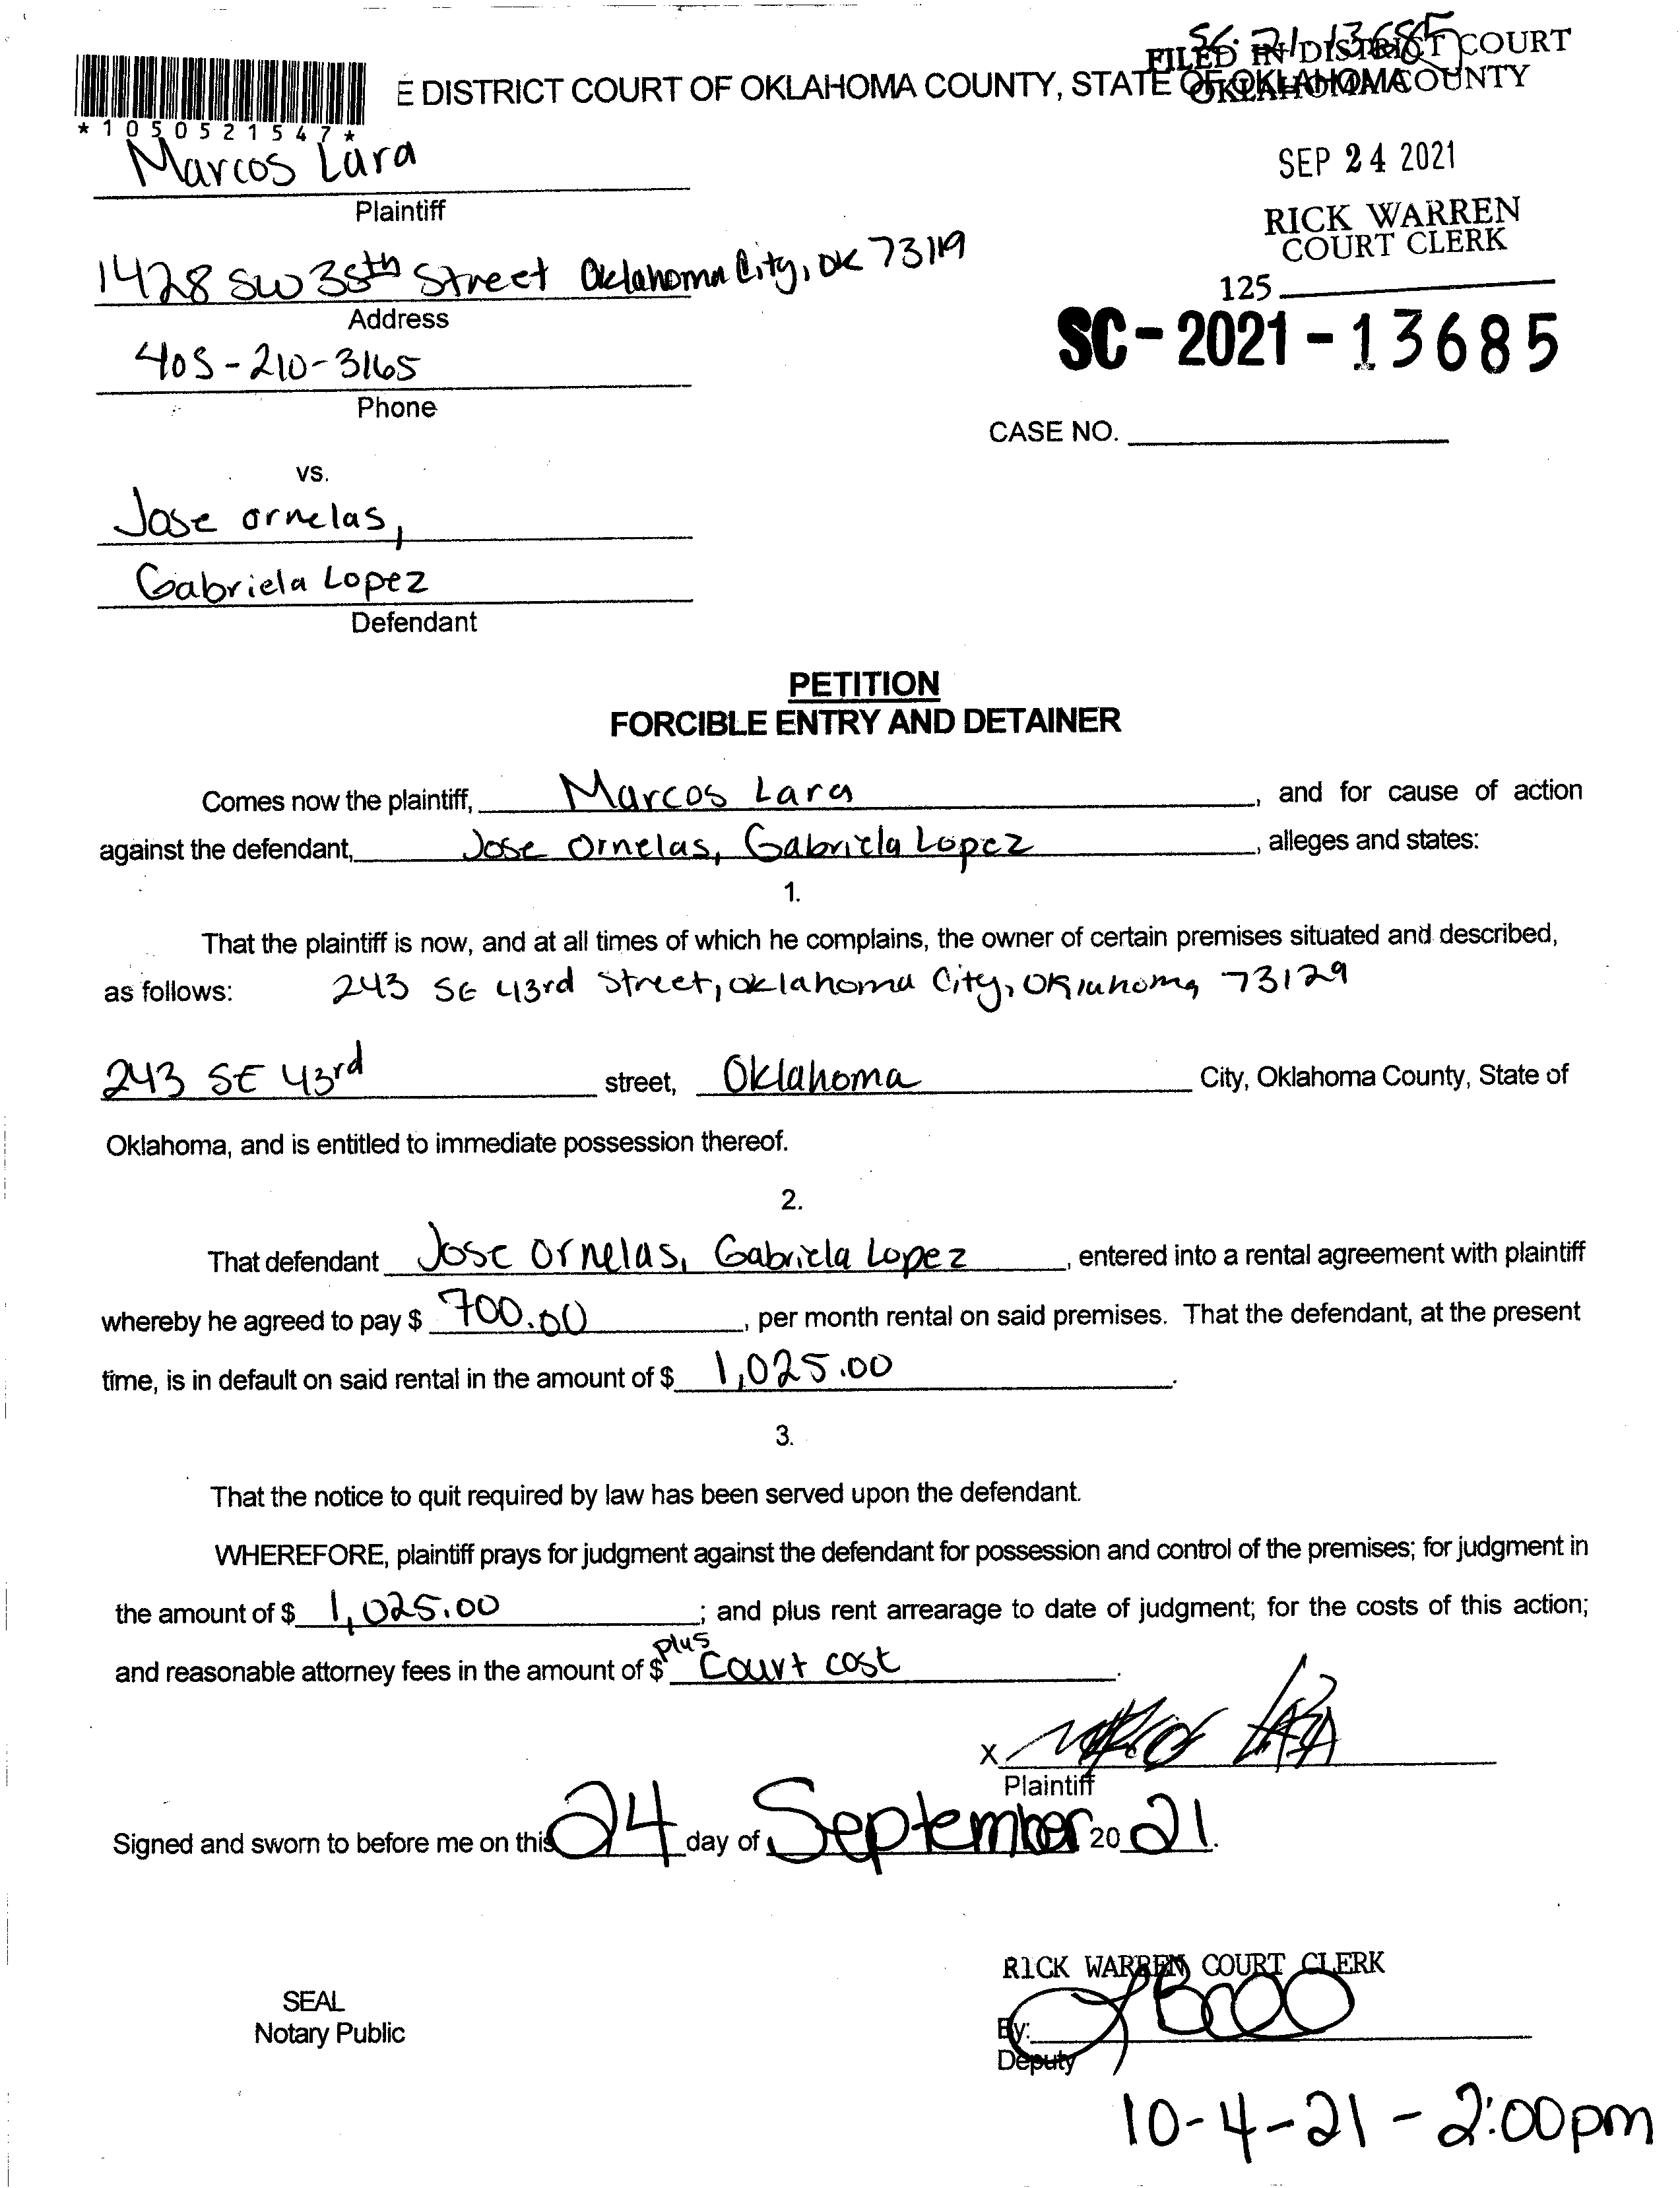 SC-21-13685
FILED IN DISTRICT COURT
E DISTRICT COURT OF OKLAHOMA COUNTY, STATE OF OKLAHOMA
OKLAHOMA COUNTY
*1050521547*
Marcos Lara
SEP 24 2021
Plaintiff
RICK WARREN
COURT CLERK
1428 SW 35th Street Oklahoma City, OK 73119
125
Address
SC-2021-13685
405-210-3165
Phone
CASE NO.
vs.
Jose ornelas,
Gabriela Lopez
Defendant
PETITION
FORCIBLE ENTRY AND DETAINER
Comes now the plaintiff, Marcos Lara, and for cause of action
against the defendant, Jose Ornelas, Gabriela Lopez, alleges and states:
1.
That the plaintiff is now, and at all times of which he complains, the owner of certain premises situated and described,
as follows: 243 SE 43rd Street, oklahoma City, Oklahoma 73129
243 SE 43rd street, Oklahoma City, Oklahoma County, State of
Oklahoma, and is entitled to immediate possession thereof.
2.
That defendant Jose Ornelas, Gabriela Lopez, entered into a rental agreement with plaintiff
whereby he agreed to pay $ 700.00, per month rental on said premises. That the defendant, at the present
time, is in default on said rental in the amount of $ 1,025.00.
3.
That the notice to quit required by law has been served upon the defendant.
WHEREFORE, plaintiff prays for judgment against the defendant for possession and control of the premises; for judgment in
the amount of $ 1,025.00; and plus rent arrearage to date of judgment; for the costs of this action;
and reasonable attorney fees in the amount of $ plus Court cost.
X
Plaintiff
Signed and sworn to before me on this 24 day of September 20 21.
RICK WARREN COURT CLERK
SEAL
Notary Public
By:
Deputy
10-4-21 - 2:00pm